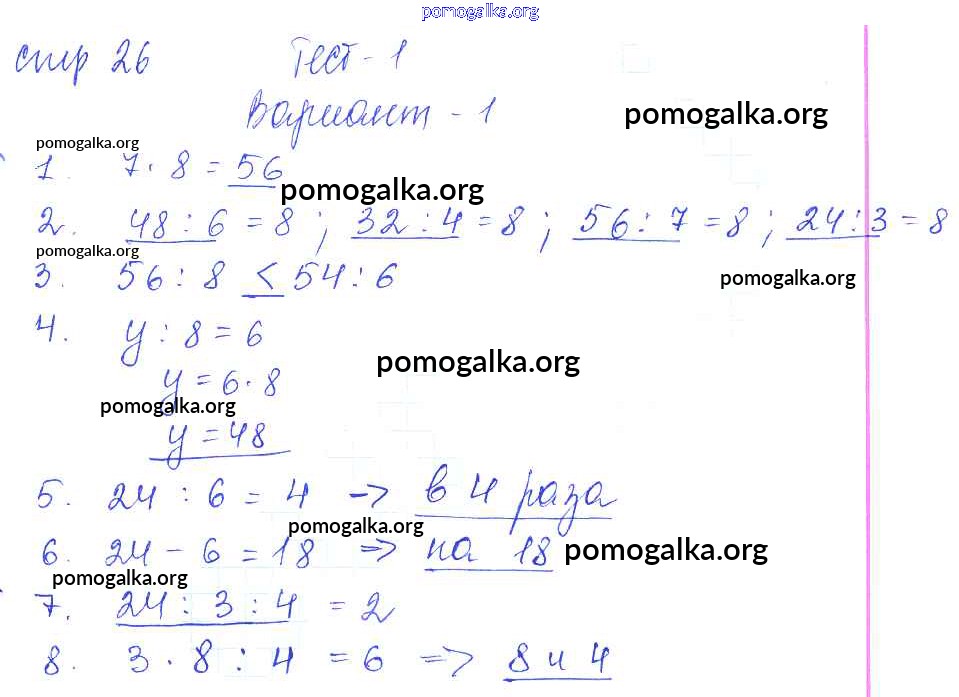 pomogalka.org
стр 26 Тест-1
Вариант-1
pomogalka.org
pomogalka.org
1. 7·8=56
pomogalka.org
2. 48:6=8; 32:4=8; 56:7=8; 24:3=8
pomogalka.org
3. 56:8 < 54:6
pomogalka.org
4. y:8=6
pomogalka.org
y=6·8
pomogalka.org
y=48
5. 24:6=4 -> в 4 раза
pomogalka.org
6. 24-6=18 => на 18
pomogalka.org
pomogalka.org
7. 24:3:4=2
8. 3·8:4=6 => 8 и 4